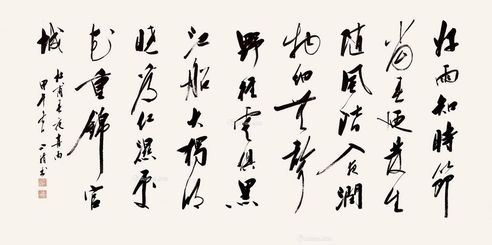 好雨知時節
當春發生
随風潜入夜潤
物細無聲
野徑雲俱黑
江船火獨明
曉看紅濕處
花重錦官
城
杜甫春夜喜雨
甲午書